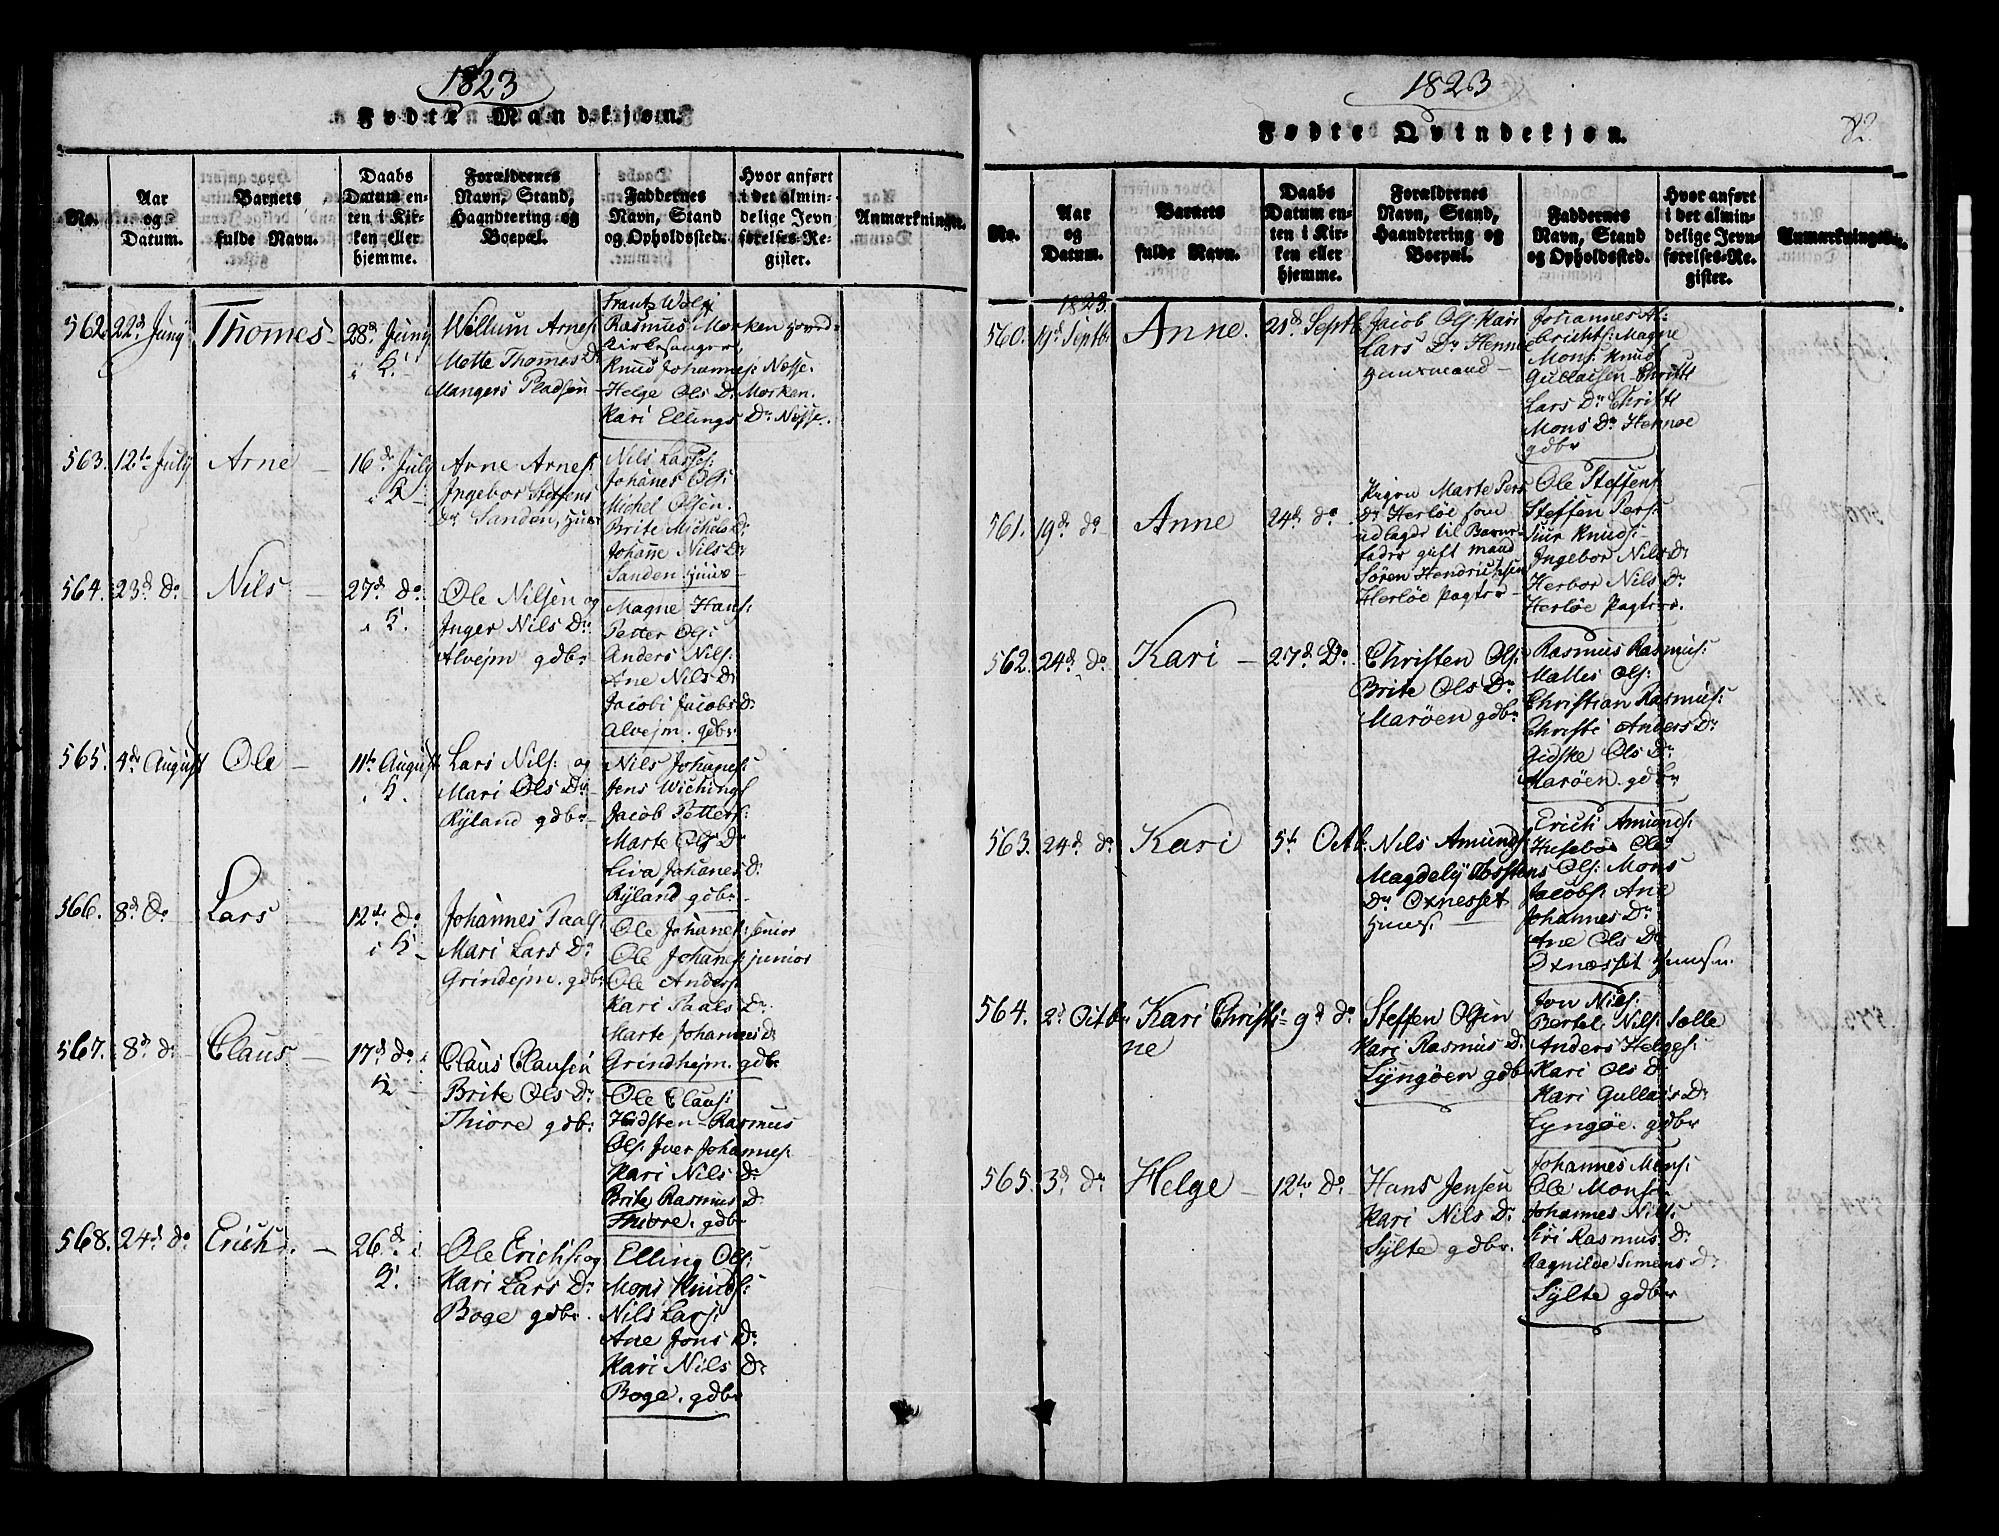 1823
Fødte Mandkjøn.
No.
Aar og Datum.
Barnets fulde Navn.
Daabs Datum enten i Kirken eller hjemme.
Forældrenes Navn, Stand, Haandtering og Boepæl.
Faddernes Navn, Stand og Opholdssted.
Hvor anført i det almindelige Jevnførelses-Register.
Anmærkninger.
562. 22d Junij
Thomes
28d Junij
i K.
Willum Arnes:
Mette Thomes Dr
Mangers Pladsen
Rasmus Morken
Kirkesanger,
Knud Johannes: Nøsse.
Helge Ols Dr Morken.
Kari Ellings Dr Nøsse.
563. 12te July
Arne
16d July
i K
Arne Arnes:
Ingebor Steffens
Dr Sanden, Huus
Nils Lars:
Johanes Ols:
Michel Olsen.
Brite Michels Dr
Johanne Nils Dr
Sanden Huus
564. 23d Do
Nils
27d Do
i K.
Ole Nilsen og
Inger Nils Dr
Alvejm gdbr
Magne Hans:
Petter Ols:
Anders Nils:
Ane Nils Dr
Jacobi Jacobs Dr
Alvejm. gdbr
565. 4de August
Ole
11te August
i K.
Lars Nils: og
Mari Ols Dr
Ryland gdbr
Nils Johanes:
Jens Wichings
Jacob Petters:
Marte Ols Dr
Liva Johanes Dr
Ryland gdbr
566. 8d Do
Lars
12te Do
i K
Johannes Paals:
Mari Lars Dr
Grindejm. gdbr
Ole Johanes: senior
Ole Johanes: junior
Ole Anders:
Kari Paals Dr
Marte Johannes Dr
Grindhejm. gdbr
567. 8d Do
Claus
17d Do i
K
Claus Clausen
Brite Ols Dr
Thiore gdbr
Ole Claus:
Hadsten Rasmus
Ols: Iver Johannes:
Kari Nils Dr
Brite Rasmus Dr
Thiore. gdbr
568. 24d Do
Erich
26d i
K.
Ole Erichs: og
Kari Lars Dr
Boge gdbr.
Elling Ols:
Mons Knuds:
Nils Lars:
Ane Jons Dr
Kari Nils Dr
Boge. gdbr
1823
82
Fødte Qvindekjøn.
No.
Aar og Datum.
Barnets fulde Navn.
Daabs Datum enten i Kirken eller hjemme.
Forældrenes Navn, Stand, Haandtering og Boepæl.
Faddernes Navn, Stand og Opholdssted.
Hvor anført i det almindelige Jevnførelses-Register.
Anmærkninger.
1823
560. 19d Septbr
Anne.
21d Septbr
Jacob Ols: Kari
Lars Dr Hennøe
Huusmand
Johannes Al-
brichts: Magne
Mons: Knud
Gullaksen Christi
Lars Dr Christi
Mons Dr Hennøe
gdbr
561. 19d do
Anne
24d do
Pigen Marte Pers
Dr Herløe som
udlagde til Barne-
fader gift mand
Søren Hendrichsen
Herløe Pagter
Ole Steffens:
Steffen Pers:
Siur Knuds:
Ingebor Nils Dr
Herbor Nils Dr
Herløe Pagter.
562. 24d do
Kari
27d Do
Christen Ols:
Brite Ols Dr
Marøen gdbr
Rasmus Rasmus:
Mallis Ols:
Christian Rasmus:
Christi Anders Dr
Gidske Ols Dr
Marøen. gdbr
563. 24d do
Kari
5te Octb:
Nils Amunds:
Magdely Torstens
Dr Oxnesset
Huus:
Erich Amunds:
Husebøe Ole
Ols: Mons
Jacobs: Ane
Johannes Dr
Ane Ols Dr
Oxnæsset Huusm.
564. 2d Octbr
Kari Christi-
ne
9d do
Steffen Olsen
Kari Rasmus Dr
Lyngøen gdbr
Jon Nils:
Bertel Nils: Sælle
Anders Helges:
Kari Ols Dr
Kari Gullaks Dr
Lyngøe. gdbr
565. 3d do
Helge
12te Do
Hans Jensen
Kari Nils Dr
Sylte gdbr.
Johannes Mons:
Ole Monsen
Johannes Nils:
Siri Rasmus Dr
Ragnilde Simens Dr
Sylte gdbr